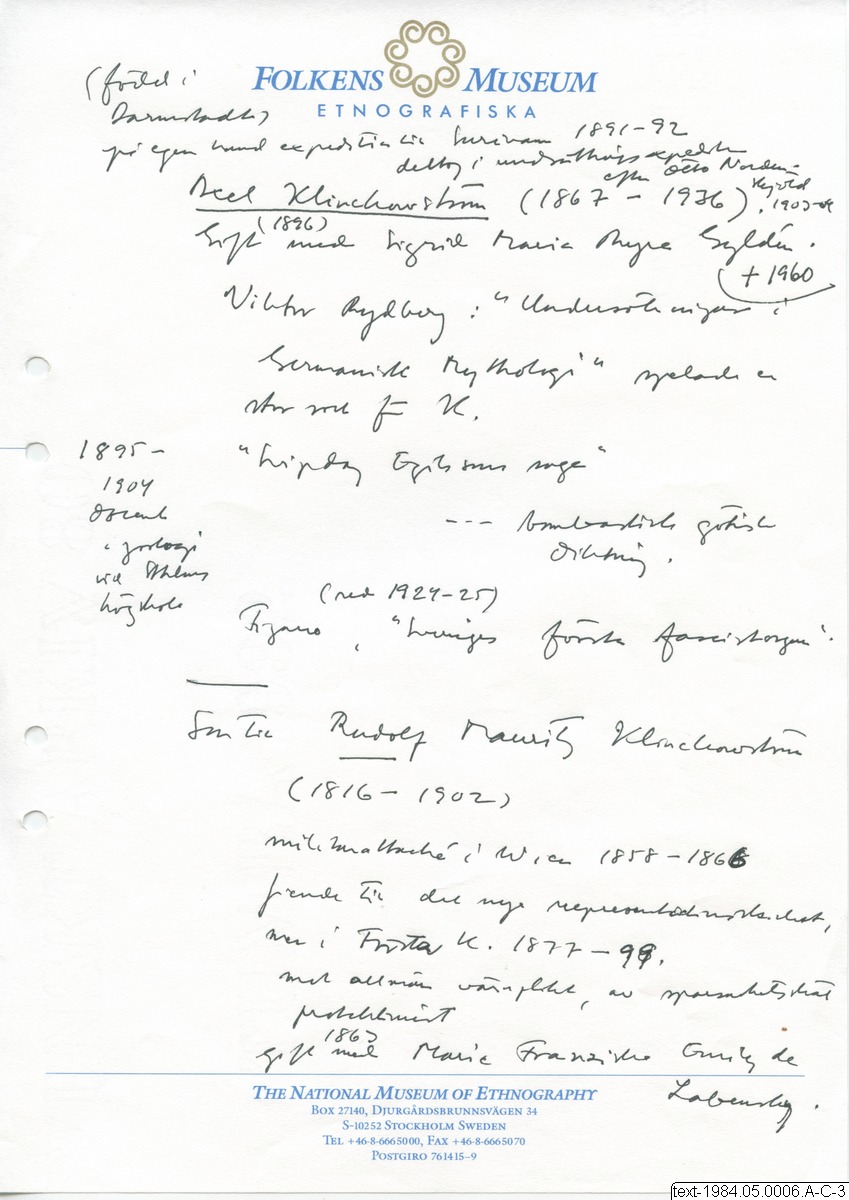 FOLKENS MUSEUM
ETNOGRAFISKA
(född i
Darmstadt)
på egen hand expedition till Surinam 1891-92
deltog i undsättningsexpedition
efter Otto Norden-
skjöld
1903-04
Axel Klinckowström (1867 - 1936)
(1896)
Gift med Sigrid Maria Thyra Gyldén.
(+ 1960
Viktor Rydberg: "Undersökningar i
Germanisk Mythologi" spelade en
stor roll för K.
1895-
1904
docent
i zoologi
vid Sthlms
högskola
"Svipdag Egilssons saga"
--- bombastisk götisk
diktning.
(red 1924-25)
"Sveriges första fascistorgan".
Son till Rudolf Mauritz Klinckowström
(1816 - 1902)
militärattaché i Wien 1858-1866
fiende till det nya representationsskicket,
men i Första K. 1877-99.
mot allmän värnplikt, av sparsamhetsskäl
protektionist
1863
gift med Maria Franziska Emily de
Labensky.
THE NATIONAL MUSEUM OF ETHNOGRAPHY
BOX 27140, DJURGÅRDSBRUNNSVÄGEN 34
S-10252 STOCKHOLM SWEDEN
TEL +46-8-6665000, FAX +46-8-6665070
POSTGIRO 761415-9
text-1984.05.0006.A-C-3